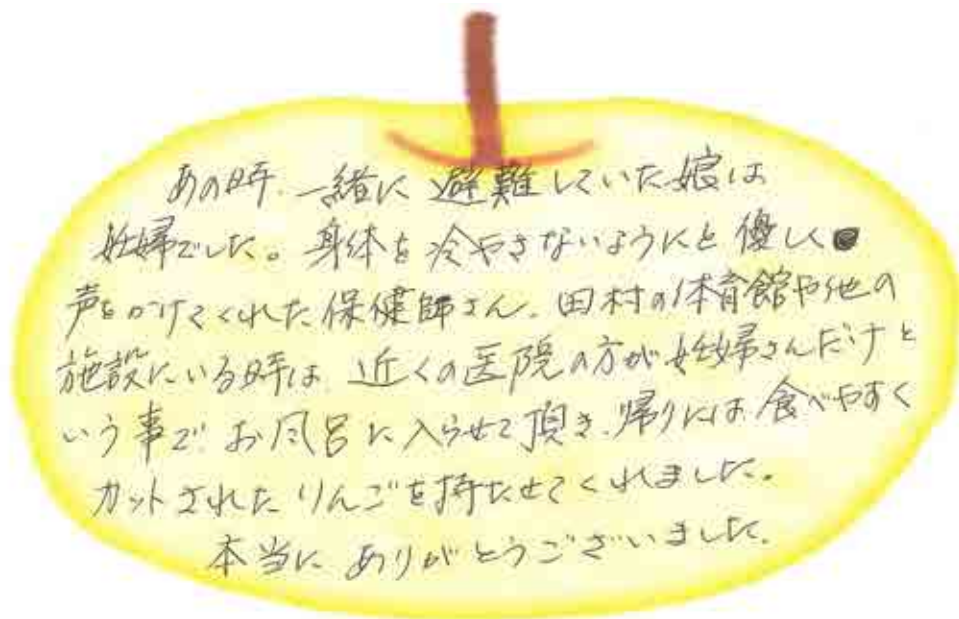 あの時、一緒に避難していた娘は
妊婦でした。身体を冷やさないようにと優しく
声をかけてくれた保健師さん。田村の体育館や他の
施設にいる時は、近くの医院の方が妊婦さんだけと
いう事で、お風呂に入らせて頂き、帰りには、食べやすく
カットされたりんごを持たせてくれました。
本当にありがとうございました。